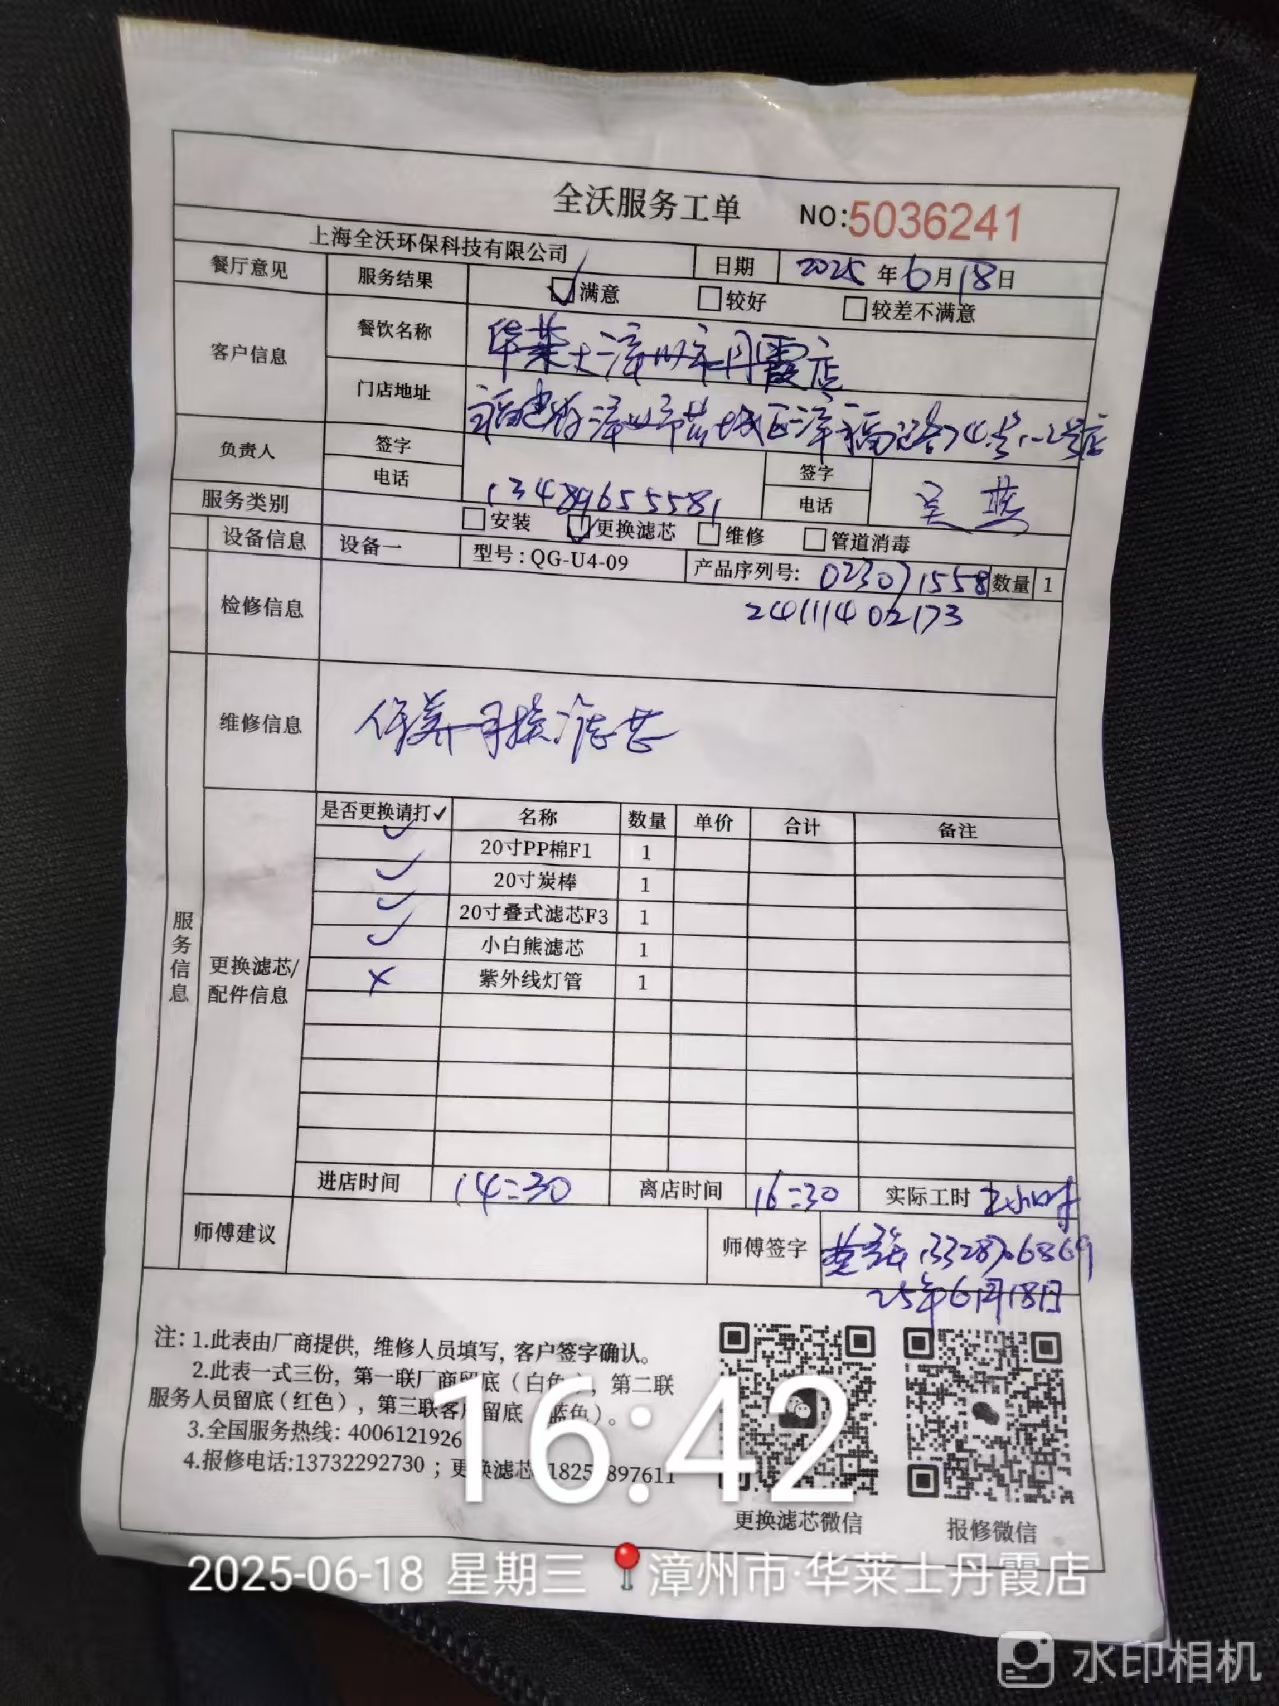 全沃服务工单 NO:5036241
上海全沃环保科技有限公司 日期 2025年6月18日
餐厅意见 服务结果 ☑满意 □较好 □较差不满意
客户信息 餐饮名称 华莱士漳州市丹霞店
门店地址 福建省漳州市芗城区漳福路74号1-2号店
负责人 签字 签字
电话 13489655581 电话
服务类别 □安装 ☑更换滤芯 □维修 □管道消毒
设备信息 设备一 型号:QG-U4-09 产品序列号: 023071558 数量 1
24111402173
检修信息
维修信息 保养更换滤芯
服务信息
更换滤芯/配件信息
是否更换请打✓ 名称 数量 单价 合计 备注
✓ 20寸PP棉F1 1
✓ 20寸炭棒 1
✓ 20寸叠式滤芯F3 1
✓ 小白熊滤芯 1
× 紫外线灯管 1
进店时间 14:30 离店时间 16:30 实际工时 2小时
师傅建议 师傅签字 13328706869
25年6月18日
注:1.此表由厂商提供,维修人员填写,客户签字确认。
2.此表一式三份,第一联厂商留底(白色),第二联
服务人员留底(红色),第三联客户留底(蓝色)。
3.全国服务热线:4006121926
4.报修电话:13732292730;更换滤芯
更换滤芯微信 报修微信
16:42
2025-06-18 星期三 漳州市·华莱士丹霞店
水印相机